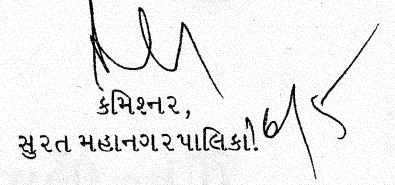 કમિશ્નર,
સુરત મહાનગરપાલિકા. ૬/૫